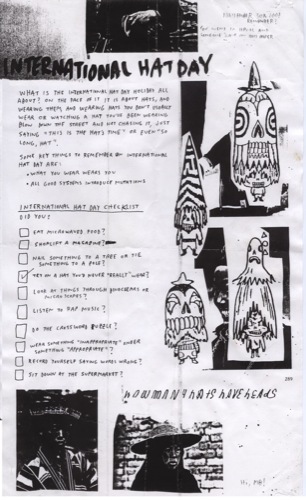 INTERNATIONAL HAT DAY
WHAT IS THE INTERNATIONAL HAT DAY HOLIDAY ALL
ABOUT? ON THE FACE OF IT IT IS ABOUT HATS, AND
WEARING THEM, AND WEARING HATS YOU DON'T USUALLY
WEAR OR WATCHING A HAT YOU'VE BEEN WEARING
BLOW DOWN THE STREET AND NOT CHASING IT, JUST
SAYING "THIS IS THE HAT'S TIME" OR EVEN "SO
LONG, HAT".
SOME KEY THINGS TO REMEMBER INTERNATIONAL
HAT DAY ARE:
• WHAT YOU WEAR WEARS YOU
• ALL GOOD SYSTEMS INTRODUCE MUTATIONS
INTERNATIONAL HAT DAY CHECKLIST
DID YOU:
EAT MICROWAVED FOOD?
SHOPLIFT A MAGAZINE?
NAIL SOMETHING TO A TREE OR TIE
SOMETHING TO A POLE?
TRY ON A HAT YOU'D NEVER "REALLY" WEAR?
LOOK AT THINGS THROUGH BINOCULARS OR
MICROSCOPES?
LISTEN TO RAP MUSIC?
DO THE CROSSWORD PUZZLE?
WEAR SOMETHING "INAPPROPRIATE" UNDER
SOMETHING "APPROPRIATE"?
RECORD YOURSELF SAYING WORDS WRONG?
SIT DOWN AT THE SUPERMARKET?
HOW MANY HATS HAVE HEADS